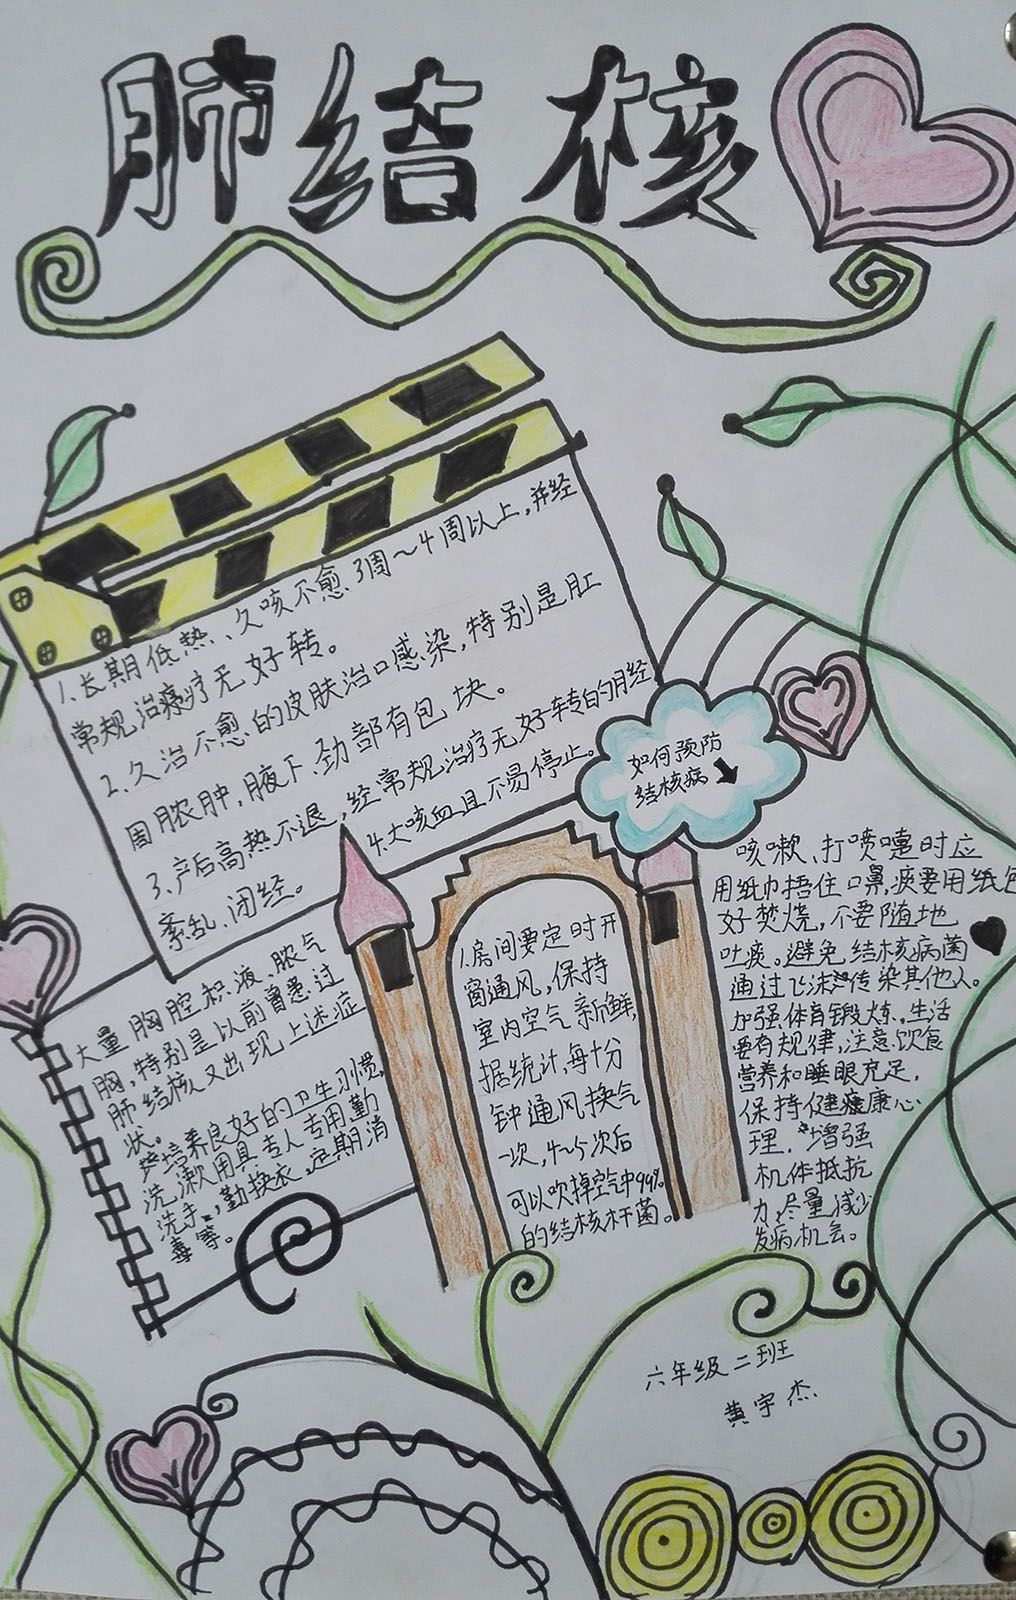 肺结核
1.长期低热、久咳不愈3周～4周以上,并经
常规治疗无好转。
2.久治不愈的皮肤治口感染,特别是肛
周脓肿,腋下、劲部有包块。
3.产后高热不退,经常规治疗无好转的月经
紊乱、闭经。
4.大咳血且不易停止。
大量胸腔积液、脓气
胸,特别是以前曾患过
肺结核又出现上述症
状。
培养良好的卫生习惯,
洗漱用具专人专用勤
洗手,勤换衣,定期消
毒等。
1.房间要定时开
窗通风,保持
室内空气新鲜,
据统计,每十分
钟通风换气
一次,4~5次后
可以吹掉空气中99%
的结核杆菌。
如何预防
结核病
咳嗽、打喷嚏时应
用纸巾捂住口鼻,痰要用纸包
好焚烧,不要随地
吐痰。避免结核病菌
通过飞沫传染其他人。
加强体育锻炼、生活
要有规律,注意饮食
营养和睡眠充足,
保持健康心
理.增强
机体抵抗
力,尽量减少
发病机会。
六年级二班
黄宇杰